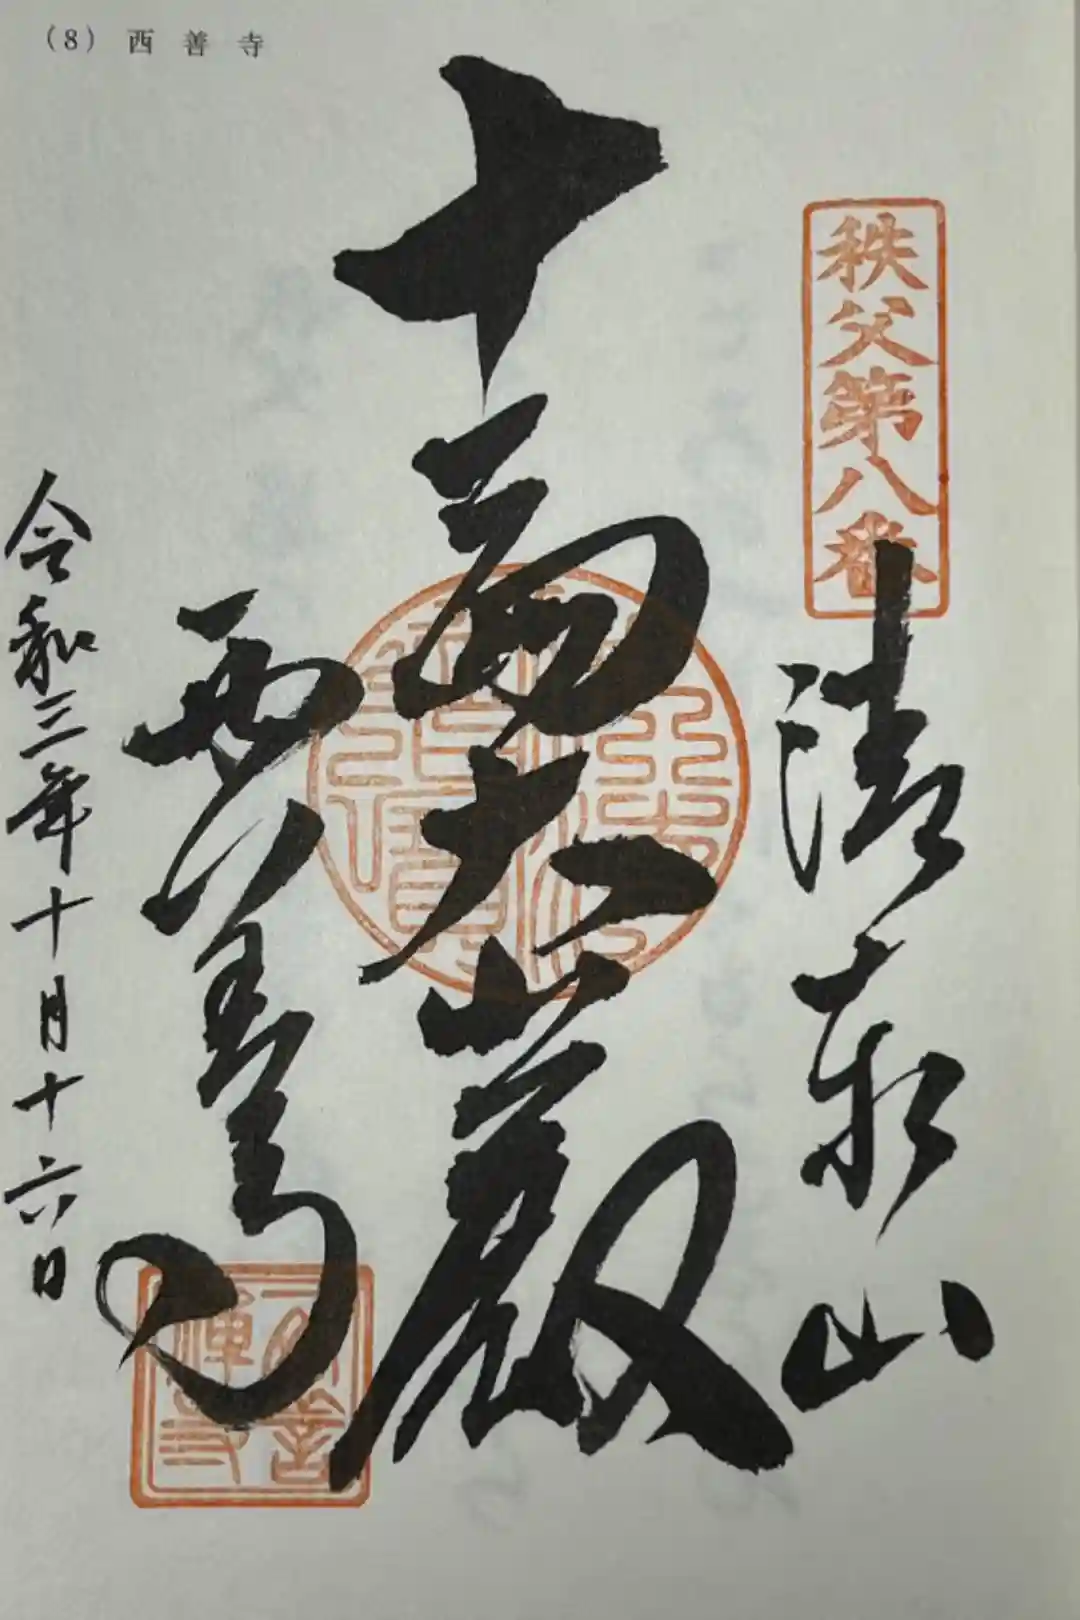 (8) 西善寺
秩父第八番
清泰山
十一面大悲殿
西善寺
令和三年十月十六日
佛法僧寶